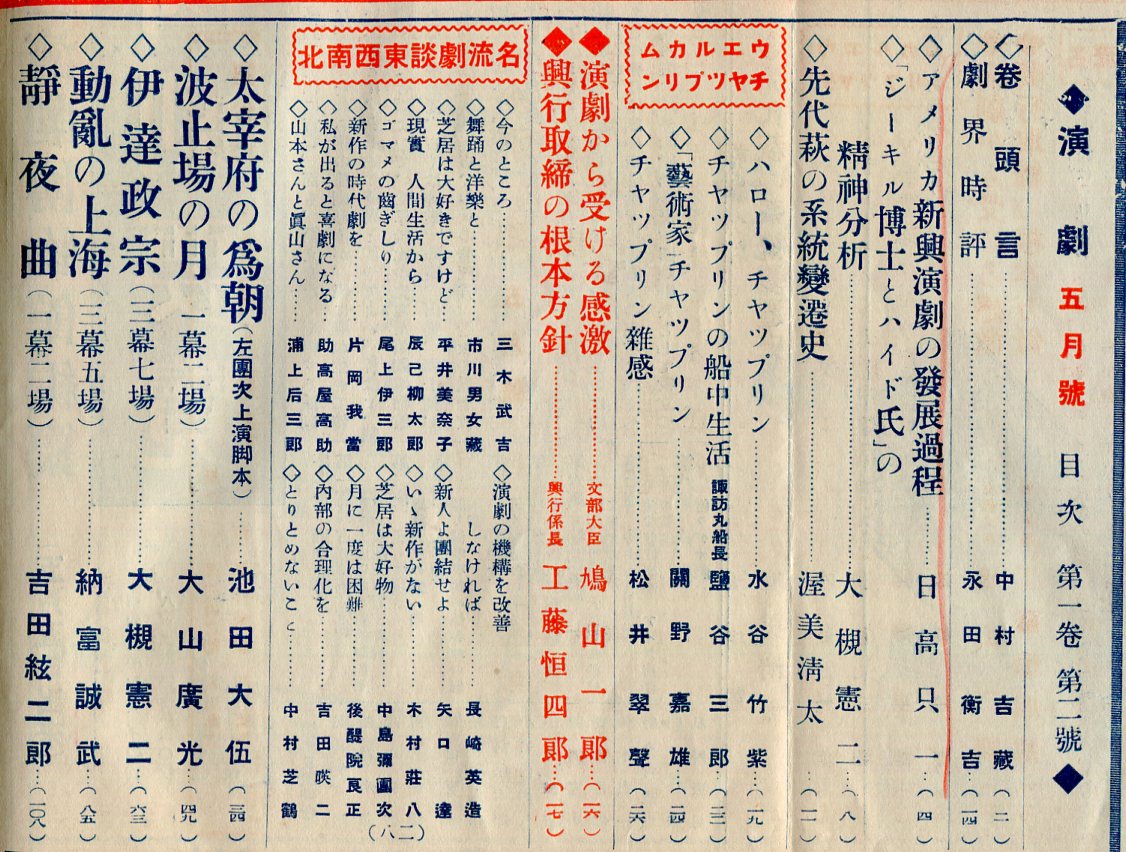 ◆演劇 五月號 目次 第一卷 第二號◆
◇卷頭言……中村吉藏…(二)
◇劇界時評……永田衡吉…(一四)
◇アメリカ新興演劇の發展過程……日高只一…(四)
◇「ジーキル博士とハイド氏」の
精神分析……大槻憲二…(八)
◇先代萩の系統變遷史……渥美淸太…(一一)
ウエルカム
チヤツプリン
◇ハロー、チヤツプリン……水谷竹紫…(一九)
◇チヤツプリンの船中生活 諏訪丸船長 鹽谷三郎…(二二)
◇「藝術家」チヤツプリン……關野嘉雄…(二四)
◇チヤツプリン雜感……松井翠聲…(二六)
◆演劇から受ける感激……文部大臣 鳩山一郎…(一六)
◆興行取締の根本方針……興行係長 工藤恒四郎…(一七)
名流劇談東西南北
◇今のところ……三木武吉
◇舞踊と洋樂と……市川男女藏
◇芝居は大好きですけど……平井美奈子
◇現實 人間生活から……辰己柳太郎
◇ゴマメの齒ぎしり……尾上伊三郎
◇新作の時代劇を……片岡我當
◇私が出ると喜劇になる……助高屋高助
◇山本さんと眞山さん……浦上后三郎
◇演劇の機構を改善
しなければ……長崎英造
◇新人よ團結せよ……矢口達
◇いゝ新作がない……木村莊八
◇芝居は大好物……中島彌團次
◇月に一度は困難……後醍院良正
◇內部の合理化を……吉田暎二
◇とりとめないこと……中村芝鶴
(八二)
◇太宰府の爲朝(左團次上演脚本)……池田大伍…(三四)
◇波止場の月(一幕二場)……大山廣光…(四九)
◇伊達政宗(三幕七場)……大槻憲二…(六三)
◇動亂の上海(三幕五場)……納富誠武…(八五)
◇靜夜曲(一幕二場)……吉田絃二郎…(一〇八)